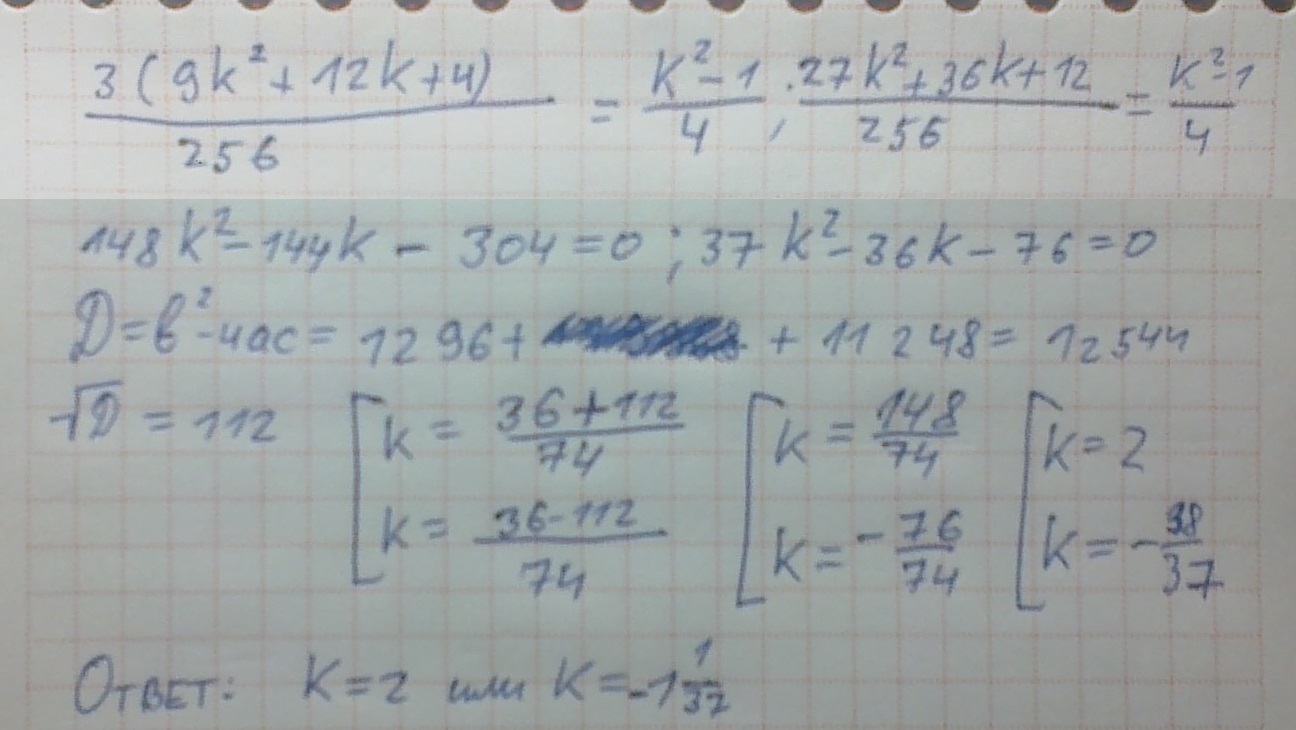 3(9k²+12k+4)/256 = k²-1/4, 27k²+36k+12/256 = k²-1/4
148k²-144k-304=0; 37k²-36k-76=0
D=b²-4ac=1296+ +11248=12544
√D=112 [k=36+112/74 [k=148/74 [k=2
k=36-112/74 k=-76/74 k=-38/37
Ответ: k=2 или k=-1 1/37